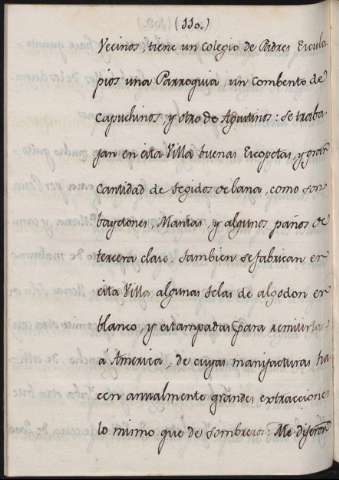 (110.)
Vecinos, tiene un colegio de Padres Escula-
pios una Parroquia, un Combento de
Capuchinos, y otro de Agustinos: se traba-
jan en esta Villa buenas Escopetas, y gran
cantidad de tegidos de lana, como son
bayetones, Mantas, y algunos paños de
tercera clase, tambien se fabrican en
esta Villa algunas telas de algodon en
blanco, y estampadas para remitirlas
á America, de cuyas manifacturas ha-
cen anualmente grandes extracciones
lo mismo que de sombreros: Me dijeron